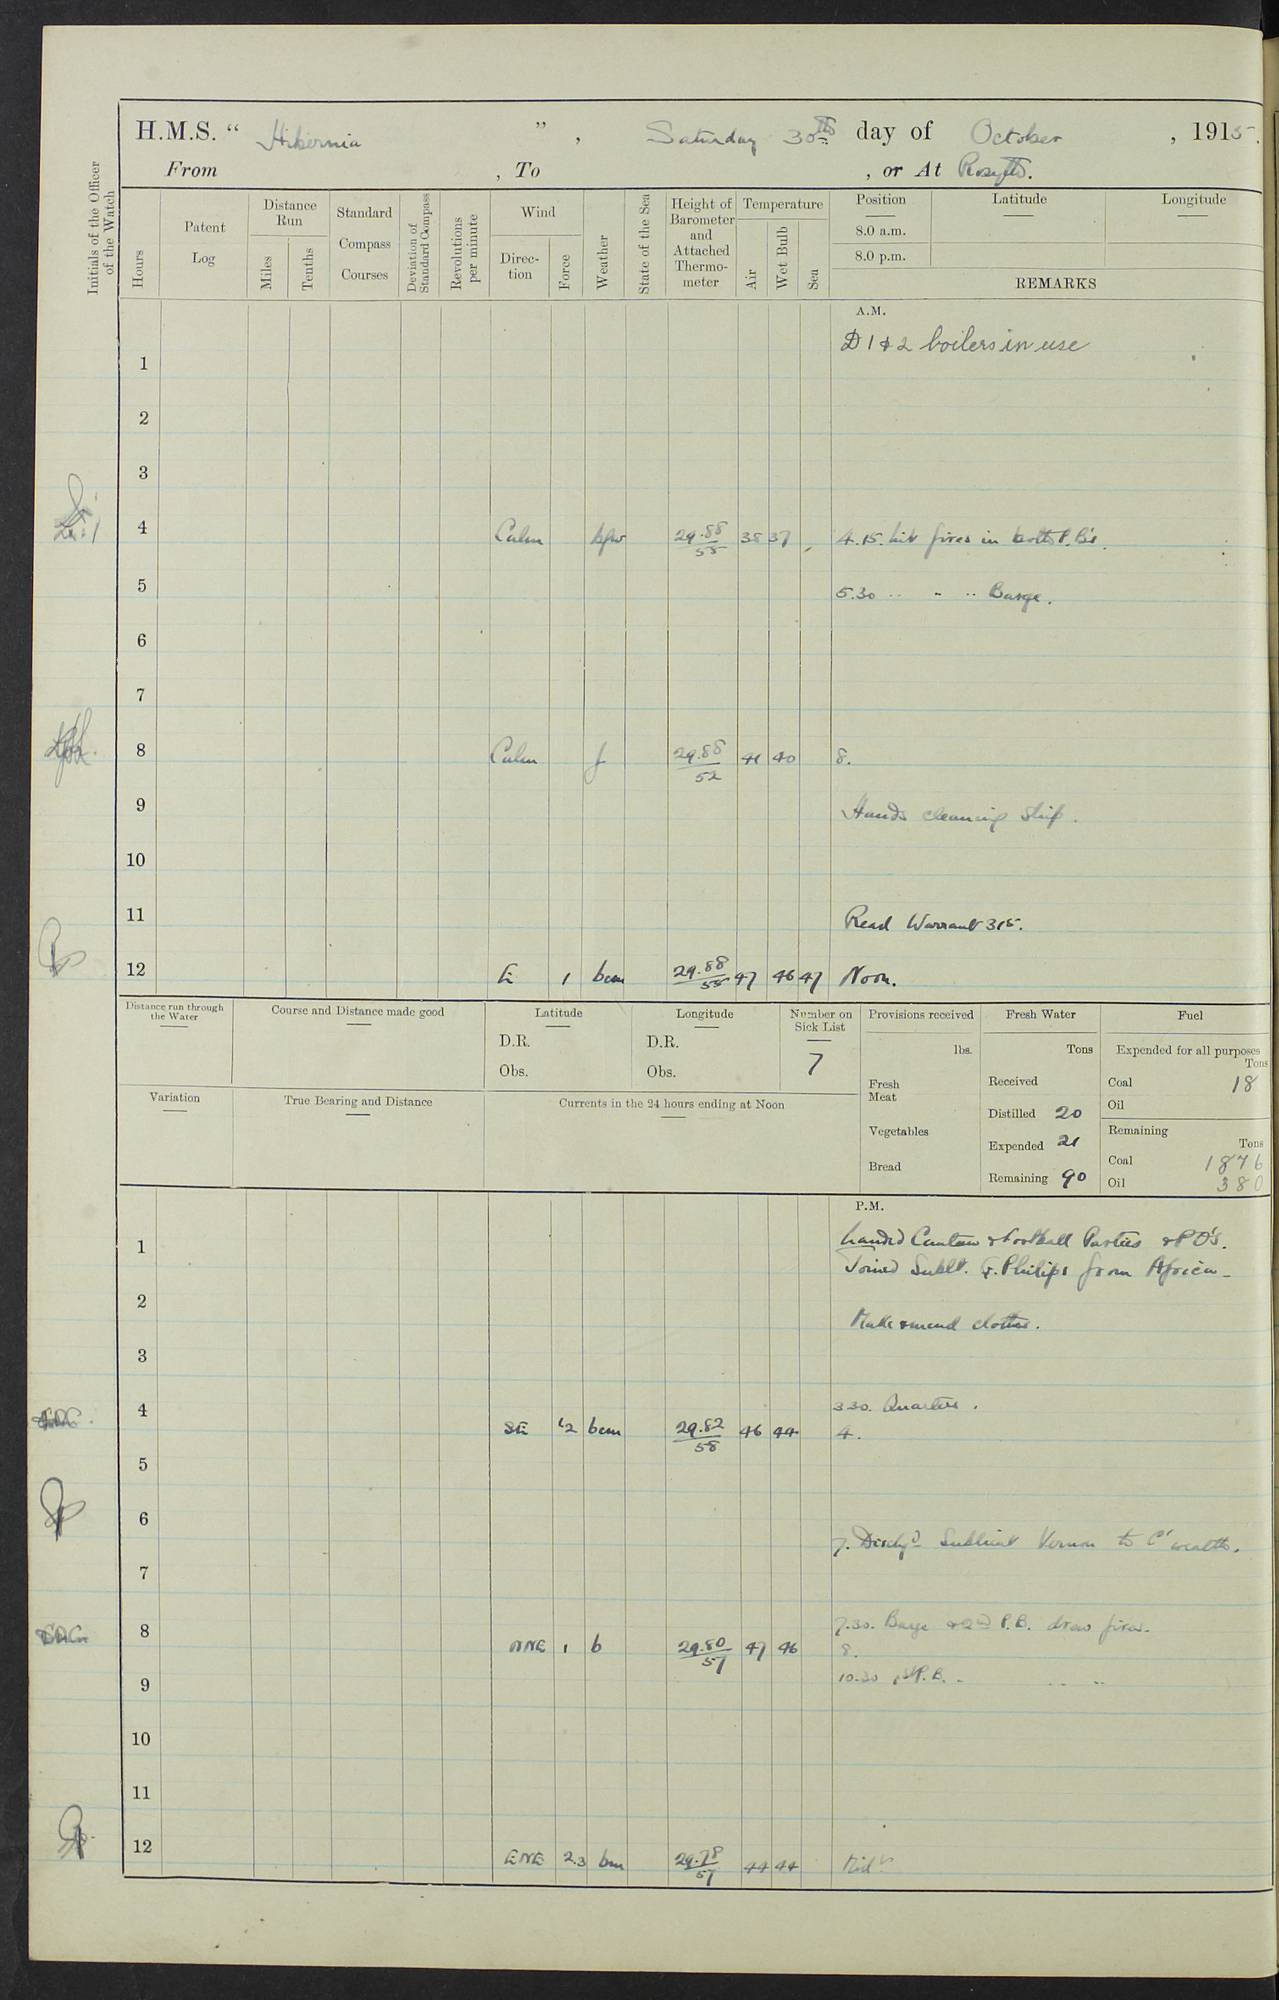 H.M.S. “ Hibernia ” , Saturday 30th day of October , 1915.
From , To , or At Rosyth.
Initials of the Officer of the Watch
Hours
Patent Log
Distance Run
Miles
Tenths
Standard Compass Courses
Deviation of Standard Compass
Revolutions per minute
Wind
Direction
Force
Weather
State of the Sea
Height of Barometer and Attached Thermometer
Temperature
Air
Wet Bulb
Sea
Position Latitude Longitude
8.0 a.m.
8.0 p.m.
REMARKS
A.M.
D 1 & 2 boilers in use
1
2
3
4 Calm bfw 29.88 38 37 4.15. Lit fires in both P.B's.
55
5 5.30 .. .. .. Barge.
6
7
8 Calm f 29.88 41 40 8.
52
9 Hands cleaning ship.
10
11 Read Warrant 315.
12 E 1 bcm 29.88 47 46 47 Noon.
55
Distance run through the Water
Course and Distance made good
Latitude
D.R.
Obs.
Longitude
D.R.
Obs.
Number on Sick List
7
Provisions received
lbs.
Fresh Meat
Vegetables
Bread
Fresh Water
Tons
Received
Distilled 20
Expended 21
Remaining 90
Fuel
Expended for all purposes
Tons
Coal 18
Oil
Remaining
Tons
Coal 1876
Oil 380
Variation
True Bearing and Distance
Currents in the 24 hours ending at Noon
P.M.
1 Landed Canteen & Football Parties & P.O's.
Joined Sublt. G. Philips from Africa -
2 Make & mend clothes.
3
4 3.30. Quarters.
SE 1-2 bcm 29.82 46 44 4.
58
5
6
7. Dischgd Sublieut Vernon to C'wealth.
7
8 7.30. Barge & 2nd P.B. draw fires.
NNE 1 b 29.80 47 46 8.
57
9 10.30 1st P.B. - .. ..
10
11
12 ENE 2.3 bm 29.78 44 44 Midt
57